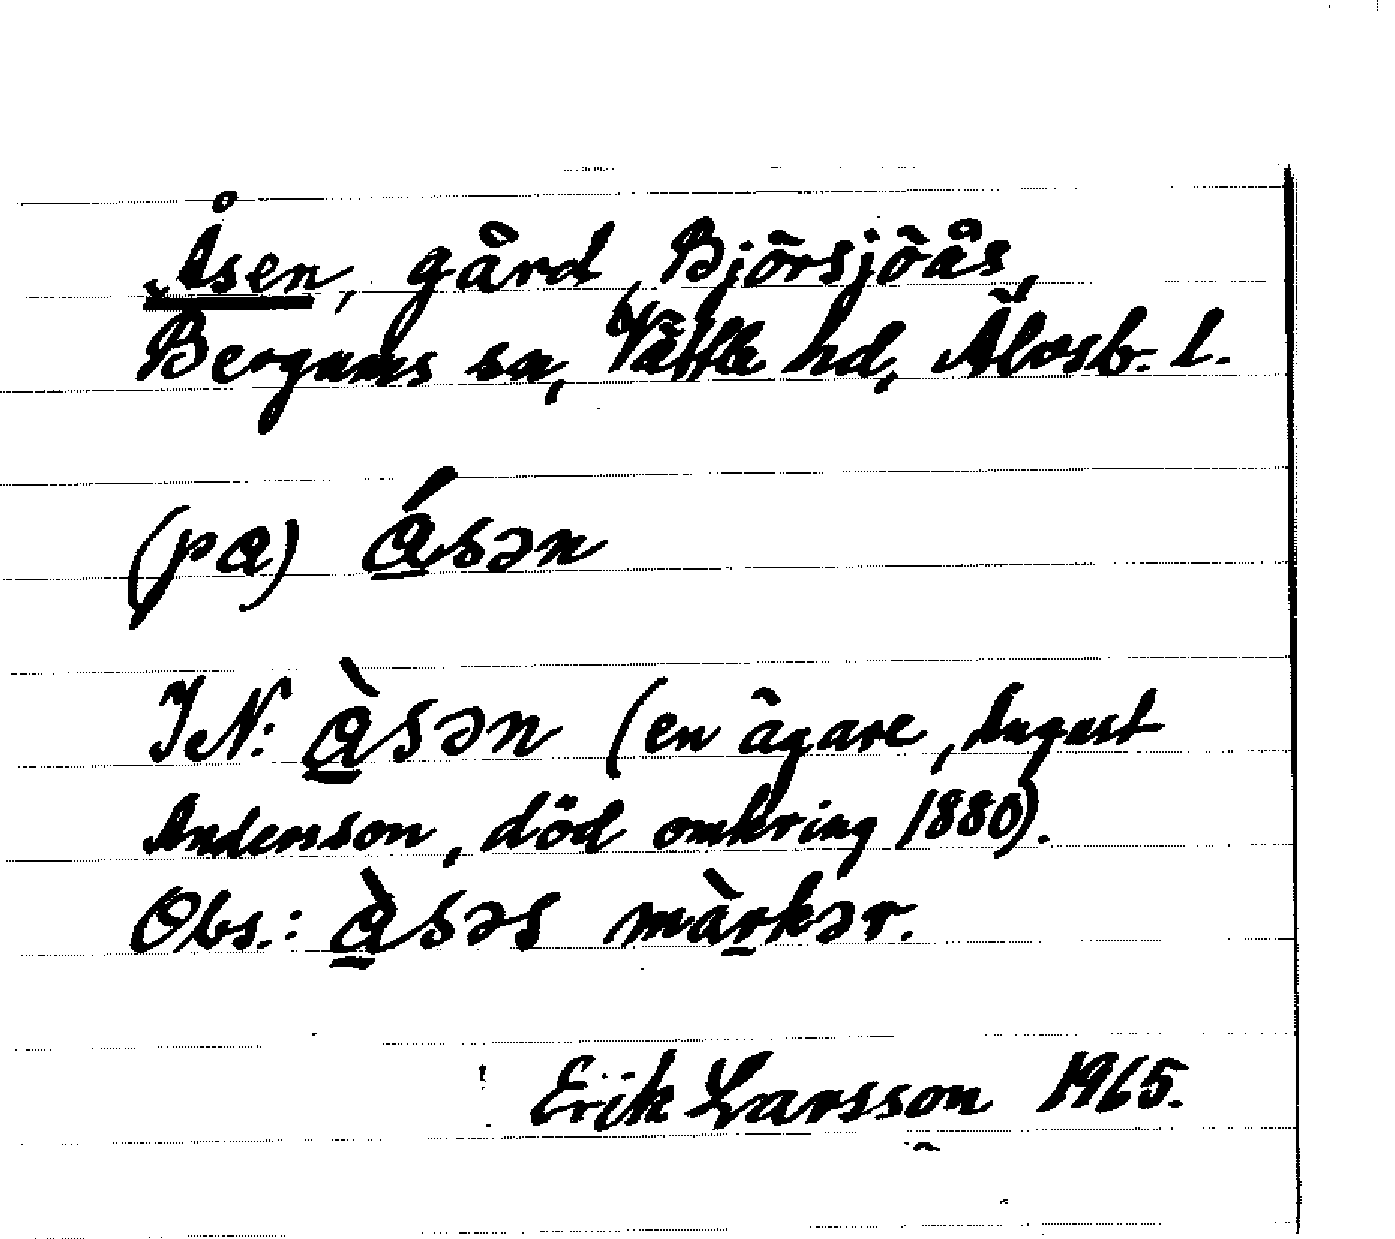 Åsen, gård, Björsjöås,
Bergums sn, Vättle hd, Älvsb. l.
(pa) á̲sən
IN: à̲sən (en ägare, August
Andersson, död omkring 1880).
Obs.: à̲səs màr̲kər.
Erik Larsson 1965.